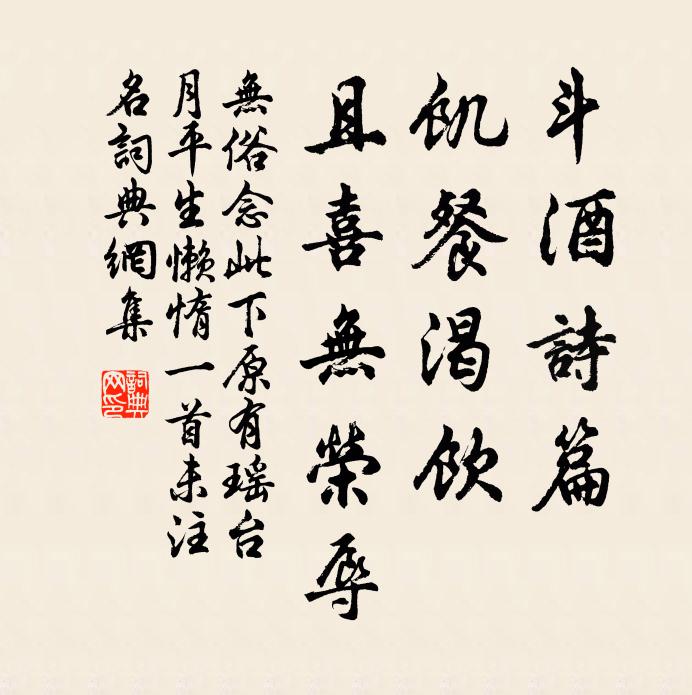 斗酒詩篇
飢餐渴飲
且喜無榮辱
無俗念此下原有瑶台
月平生懒惰一首未注
名詞典網集
詞典
网印